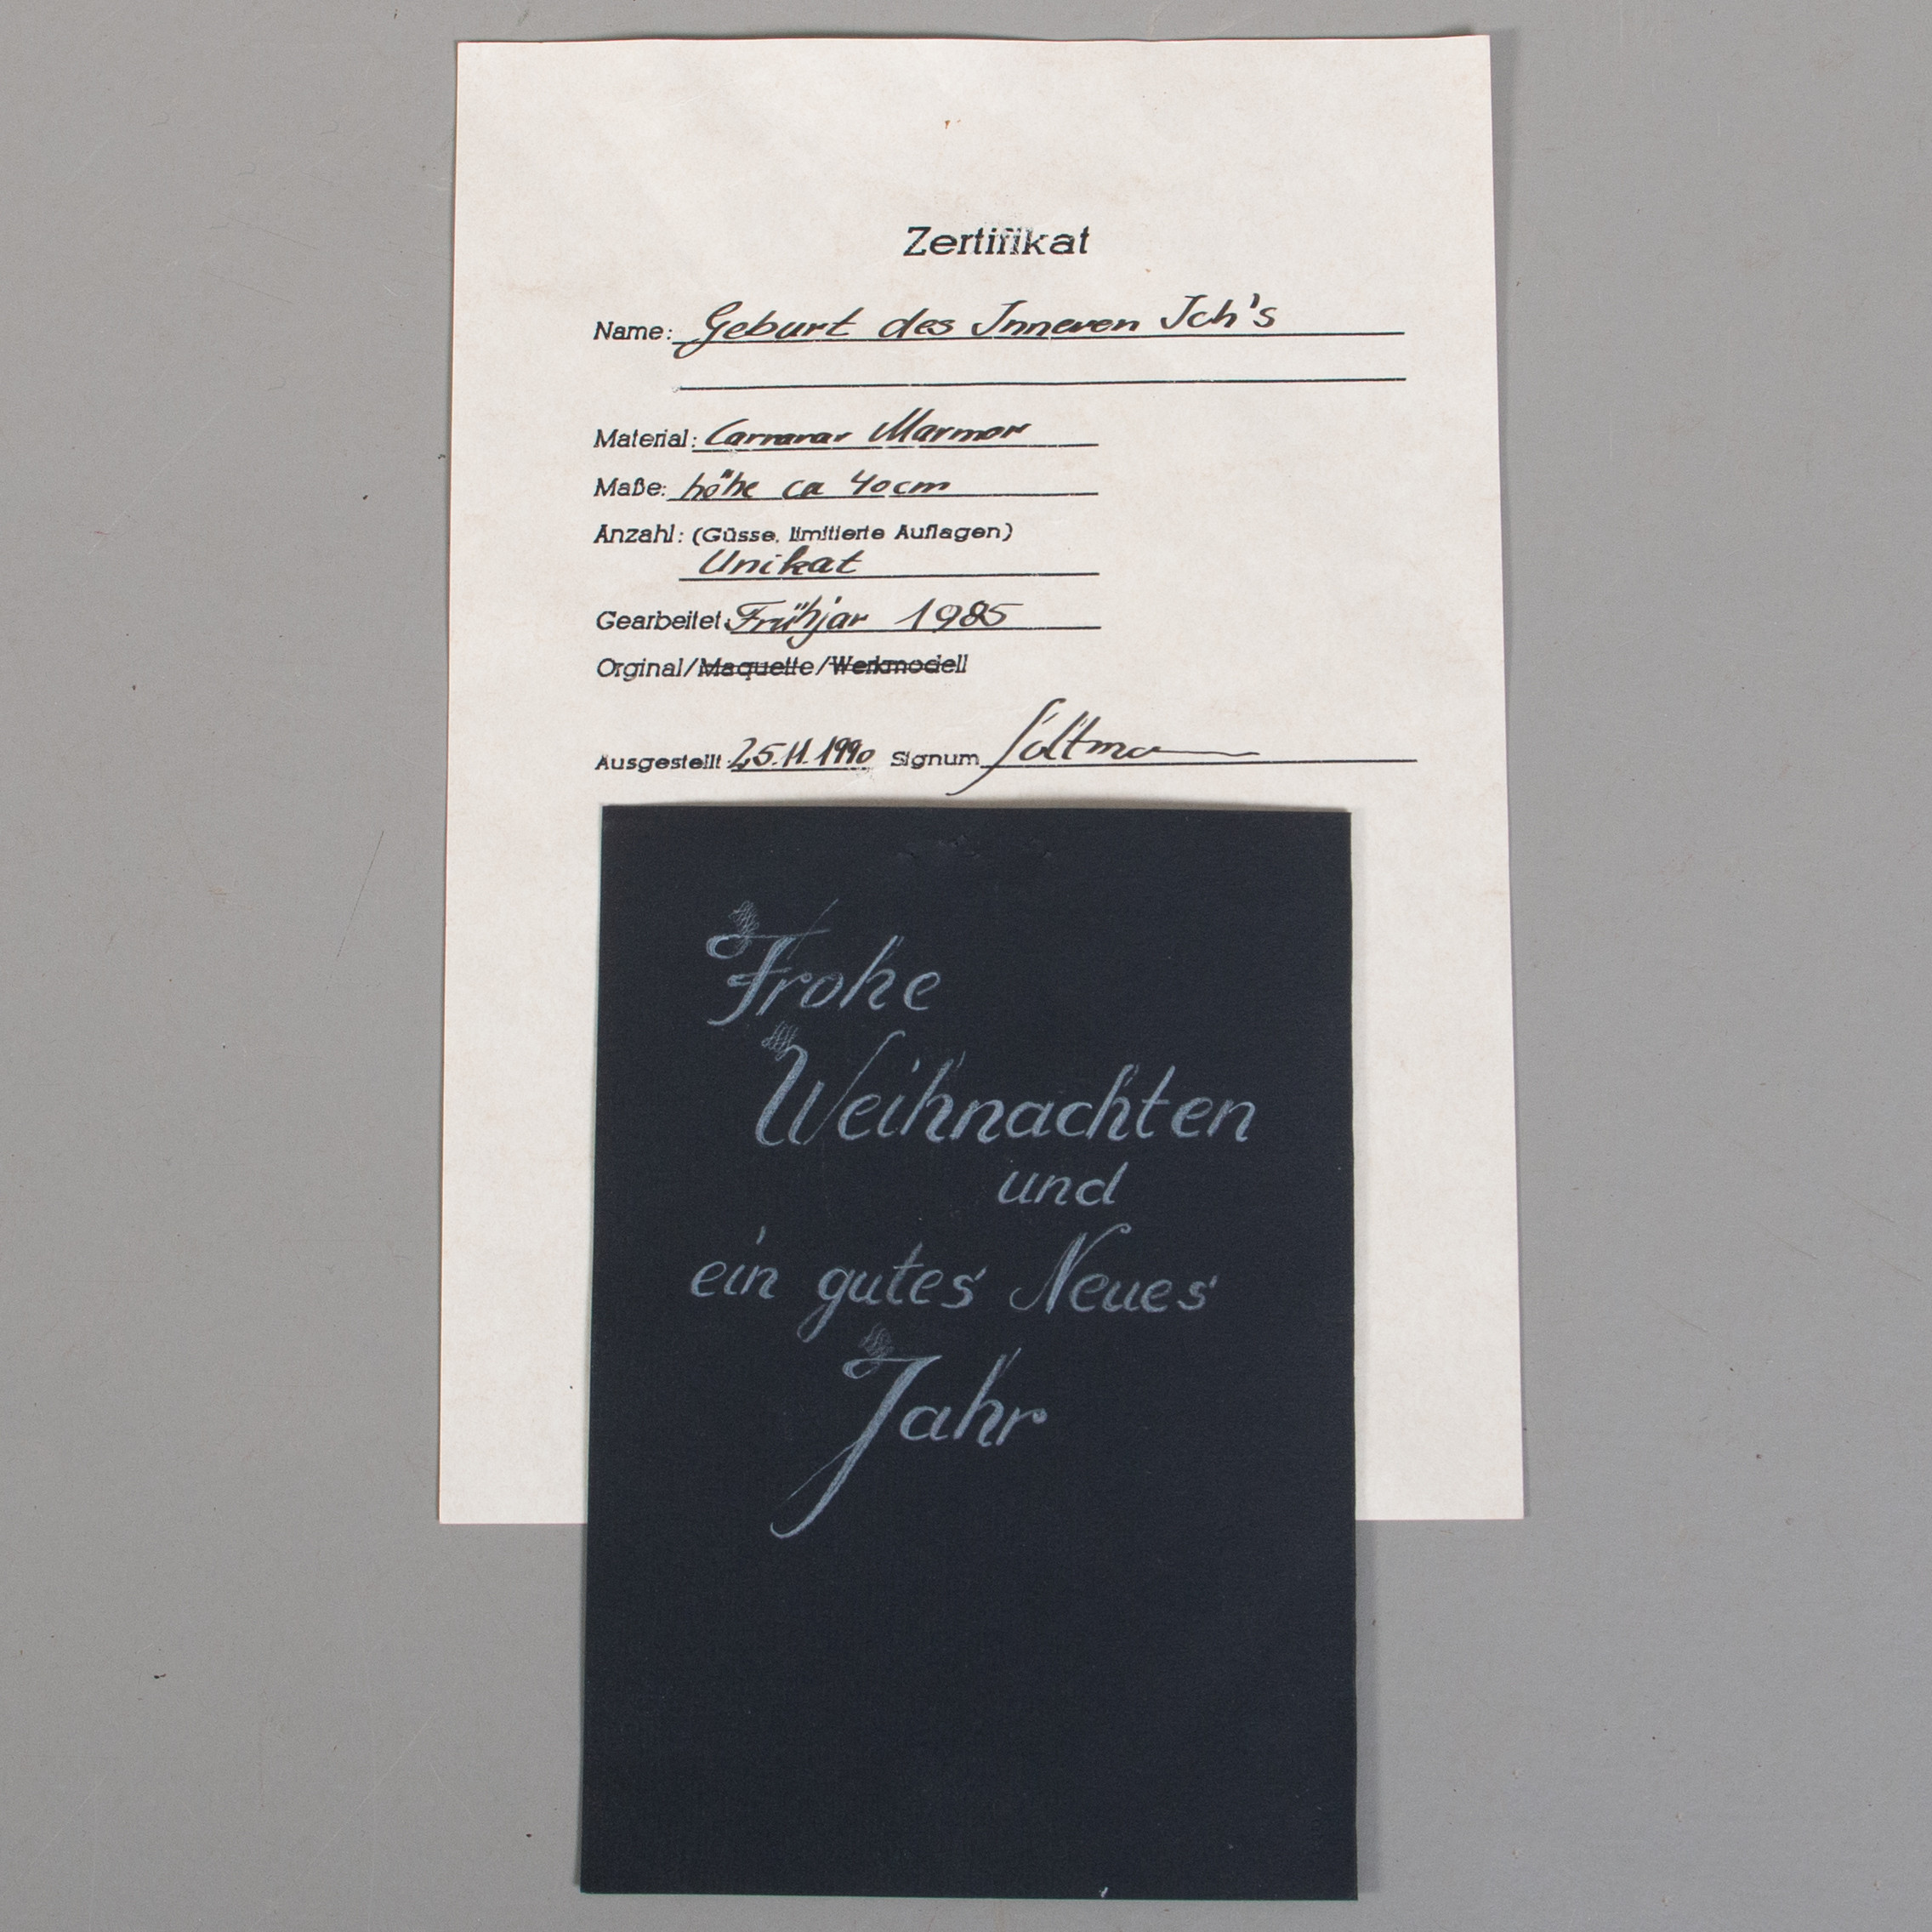 Zertifikat
Name: Geburt des Inneren Ich's
Material: Carrarar Marmor
Maße: höhe ca 40cm
Anzahl: (Güsse, limitierte Auflagen)
Unikat
Gearbeitet: Frühjar 1985
Orginal/Maquette/Werkmodell
Ausgestellt: 25.11.1990 Signum
Frohe
Weihnachten
und
ein gutes Neues
Jahr